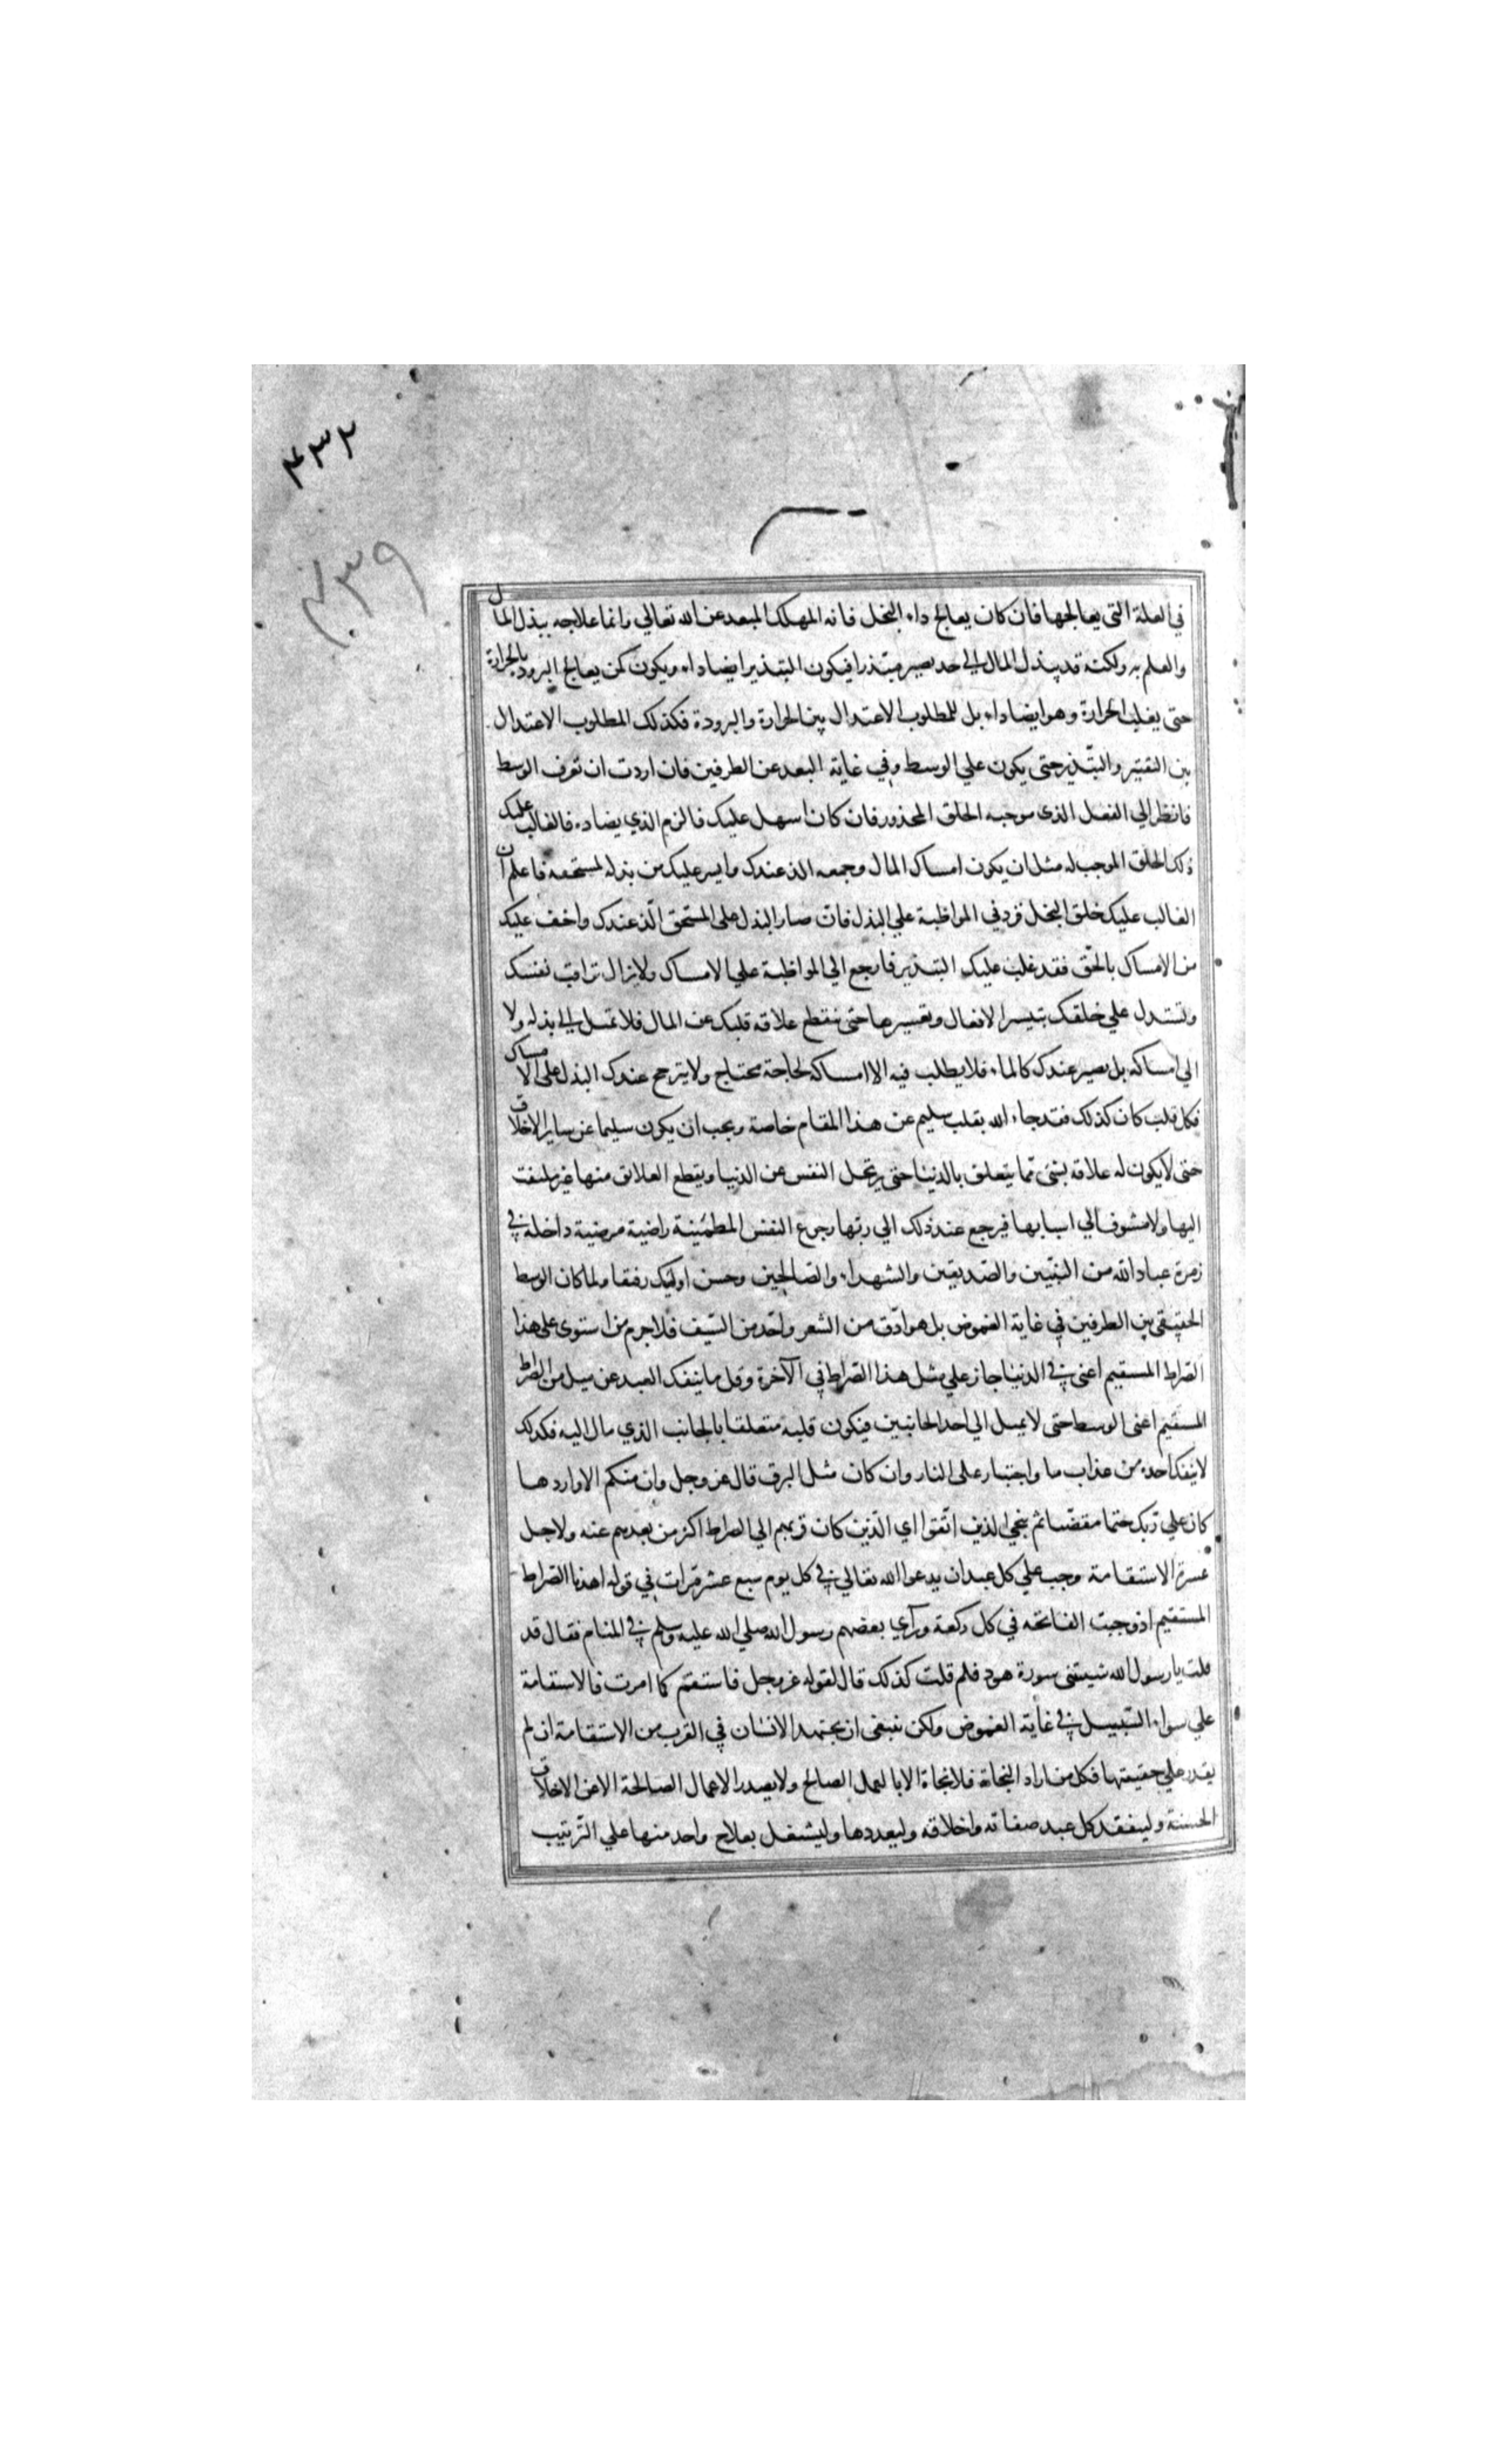 ٤٣٢
٤٣٩
في العلة التي يعالجها فان كان يعالج داء البخل فانه المهلك المبعد عن الله تعالي وانما علاجه ببذل المال
والعلم به ولكنه قد يبذل المال الي حد يصير مبتذرا فيكون التبذير ايضا داء ويكون كمن يعالج البرودة بالحرارة
حتي يغلب الحرارة وهو ايضا داء بل المطلوب الاعتدال بين الحرارة والبرودة فكذلك المطلوب الاعتدال
بين التقتير والتبذير حتي يكون علي الوسط وفي غاية البعد عن الطرفين فان اردت ان تعرف الوسط
فانظر الي الفعل الذي موجبه الخلق المحذور فان كان اسهل عليك فالزم الذي يضاده فالغالب عليك
ذلك الخلق الموجب له مثل ان يكون امساك المال وجمعه الذ عندك وايسر عليك من بذله لمستحقه فاعلم ان
الغالب عليك خلق البخل فزد في المواظبة علي البذل فان صار البذل علي المستحق الذ عندك واخف عليك
من الامساك بالحق فقد غلب عليك التبذير فارجع الي المواظبة علي الامساك ولا يزال تراقب نفسك
وتستدل علي خلقك بتيسر الافعال وتعسيرها حتي ينقطع علاقة قلبك عن المال فلا تميل الي بذله ولا
الي امساكه بل يصير عندك كالماء فلا يطلب فيه الا امساكه لحاجة محتاج ولا يترجح عندك البذل علي الامساك
فكل قلب كان كذلك فقد جاء الله بقلب سليم عن هذا المقام خاصة ويجب ان يكون سليما عن ساير الاخلاق
حتي لا يكون له علاقة بشئ مما يتعلق بالدنيا حتي يرتحل النفس عن الدنيا ويقطع العلائق منها غير ملتفت
اليها ولا متشوف الي اسبابها فيرجع عند ذلك الي ربها رجوع النفس المطمئنة راضية مرضية داخلة في
زمرة عباد الله من النبيين والصديقين والشهداء والصالحين وحسن اوليك رفيقا ولما كان الوسط
الحقيقي بين الطرفين في غاية الغموض بل هو ادق من الشعر واحد من السيف فلا جرم من استوي علي هذا
الصراط المستقيم اعني في الدنيا جاز علي مثل هذا الصراط في الآخرة وقل ما ينفك العبد عن ميل من الصراط
المستقيم اعني الوسط حتي لا يميل الي احد الجانبين فيكون قلبه متعلقا بالجانب الذي مال اليه فكذلك
لا ينفك احد من عذاب ما واجتياز علي النار وان كان مثل البرق قال عز وجل وان منكم الا واردها
كان علي ربك حتما مقضيا ثم ننجي الذين اتقوا اي الذين كان قربهم الي الصراط اكثر من بعدهم عنه ولاجل
عسرة الاستقامة وجب علي كل عبد ان يدعوا الله تعالي في كل يوم سبع عشر مرات في قوله اهدنا الصراط
المستقيم اذ وجبت الفاتحه في كل ركعة ورآي بعضهم رسول الله صلي الله عليه وسلم في المنام فقال قد
قلت يا رسول الله شيبتني سورة هود فلم قلت كذلك قال لقوله عز وجل فاستقم كما امرت فالاستقامة
علي سواء السبيل في غاية الغموض ولكن ينبغي ان يجتهد الانسان في القرب من الاستقامة ان لم
يقدر علي حقيقتها فكل من اراد النجاة فلا نجاة الا بالعمل الصالح ولا يصدر الاعمال الصالحة الا عن الاخلاق
الحسنة وليتفقد كل عبد صفاته واخلاقه وليعددها وليشتغل بعلاج واحد منها علي الترتيب